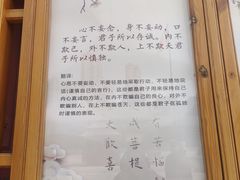 心不妄念，身不妄动，口
不妄言，君子所以存诚。内不
欺己，外不欺人，上不欺天君
子所以慎独。
翻译：
心思不要妄动，不要轻易地采取行动，不轻易地说
话(谨慎自己的言行)，这些都是君子用来保持自己
内心真诚的方法，在内不欺骗自己的良心，对外不
欺骗别人，在上不欺骗苍天，这些都是君子在孤独
时谨慎的表现。
大欢喜
成菩提